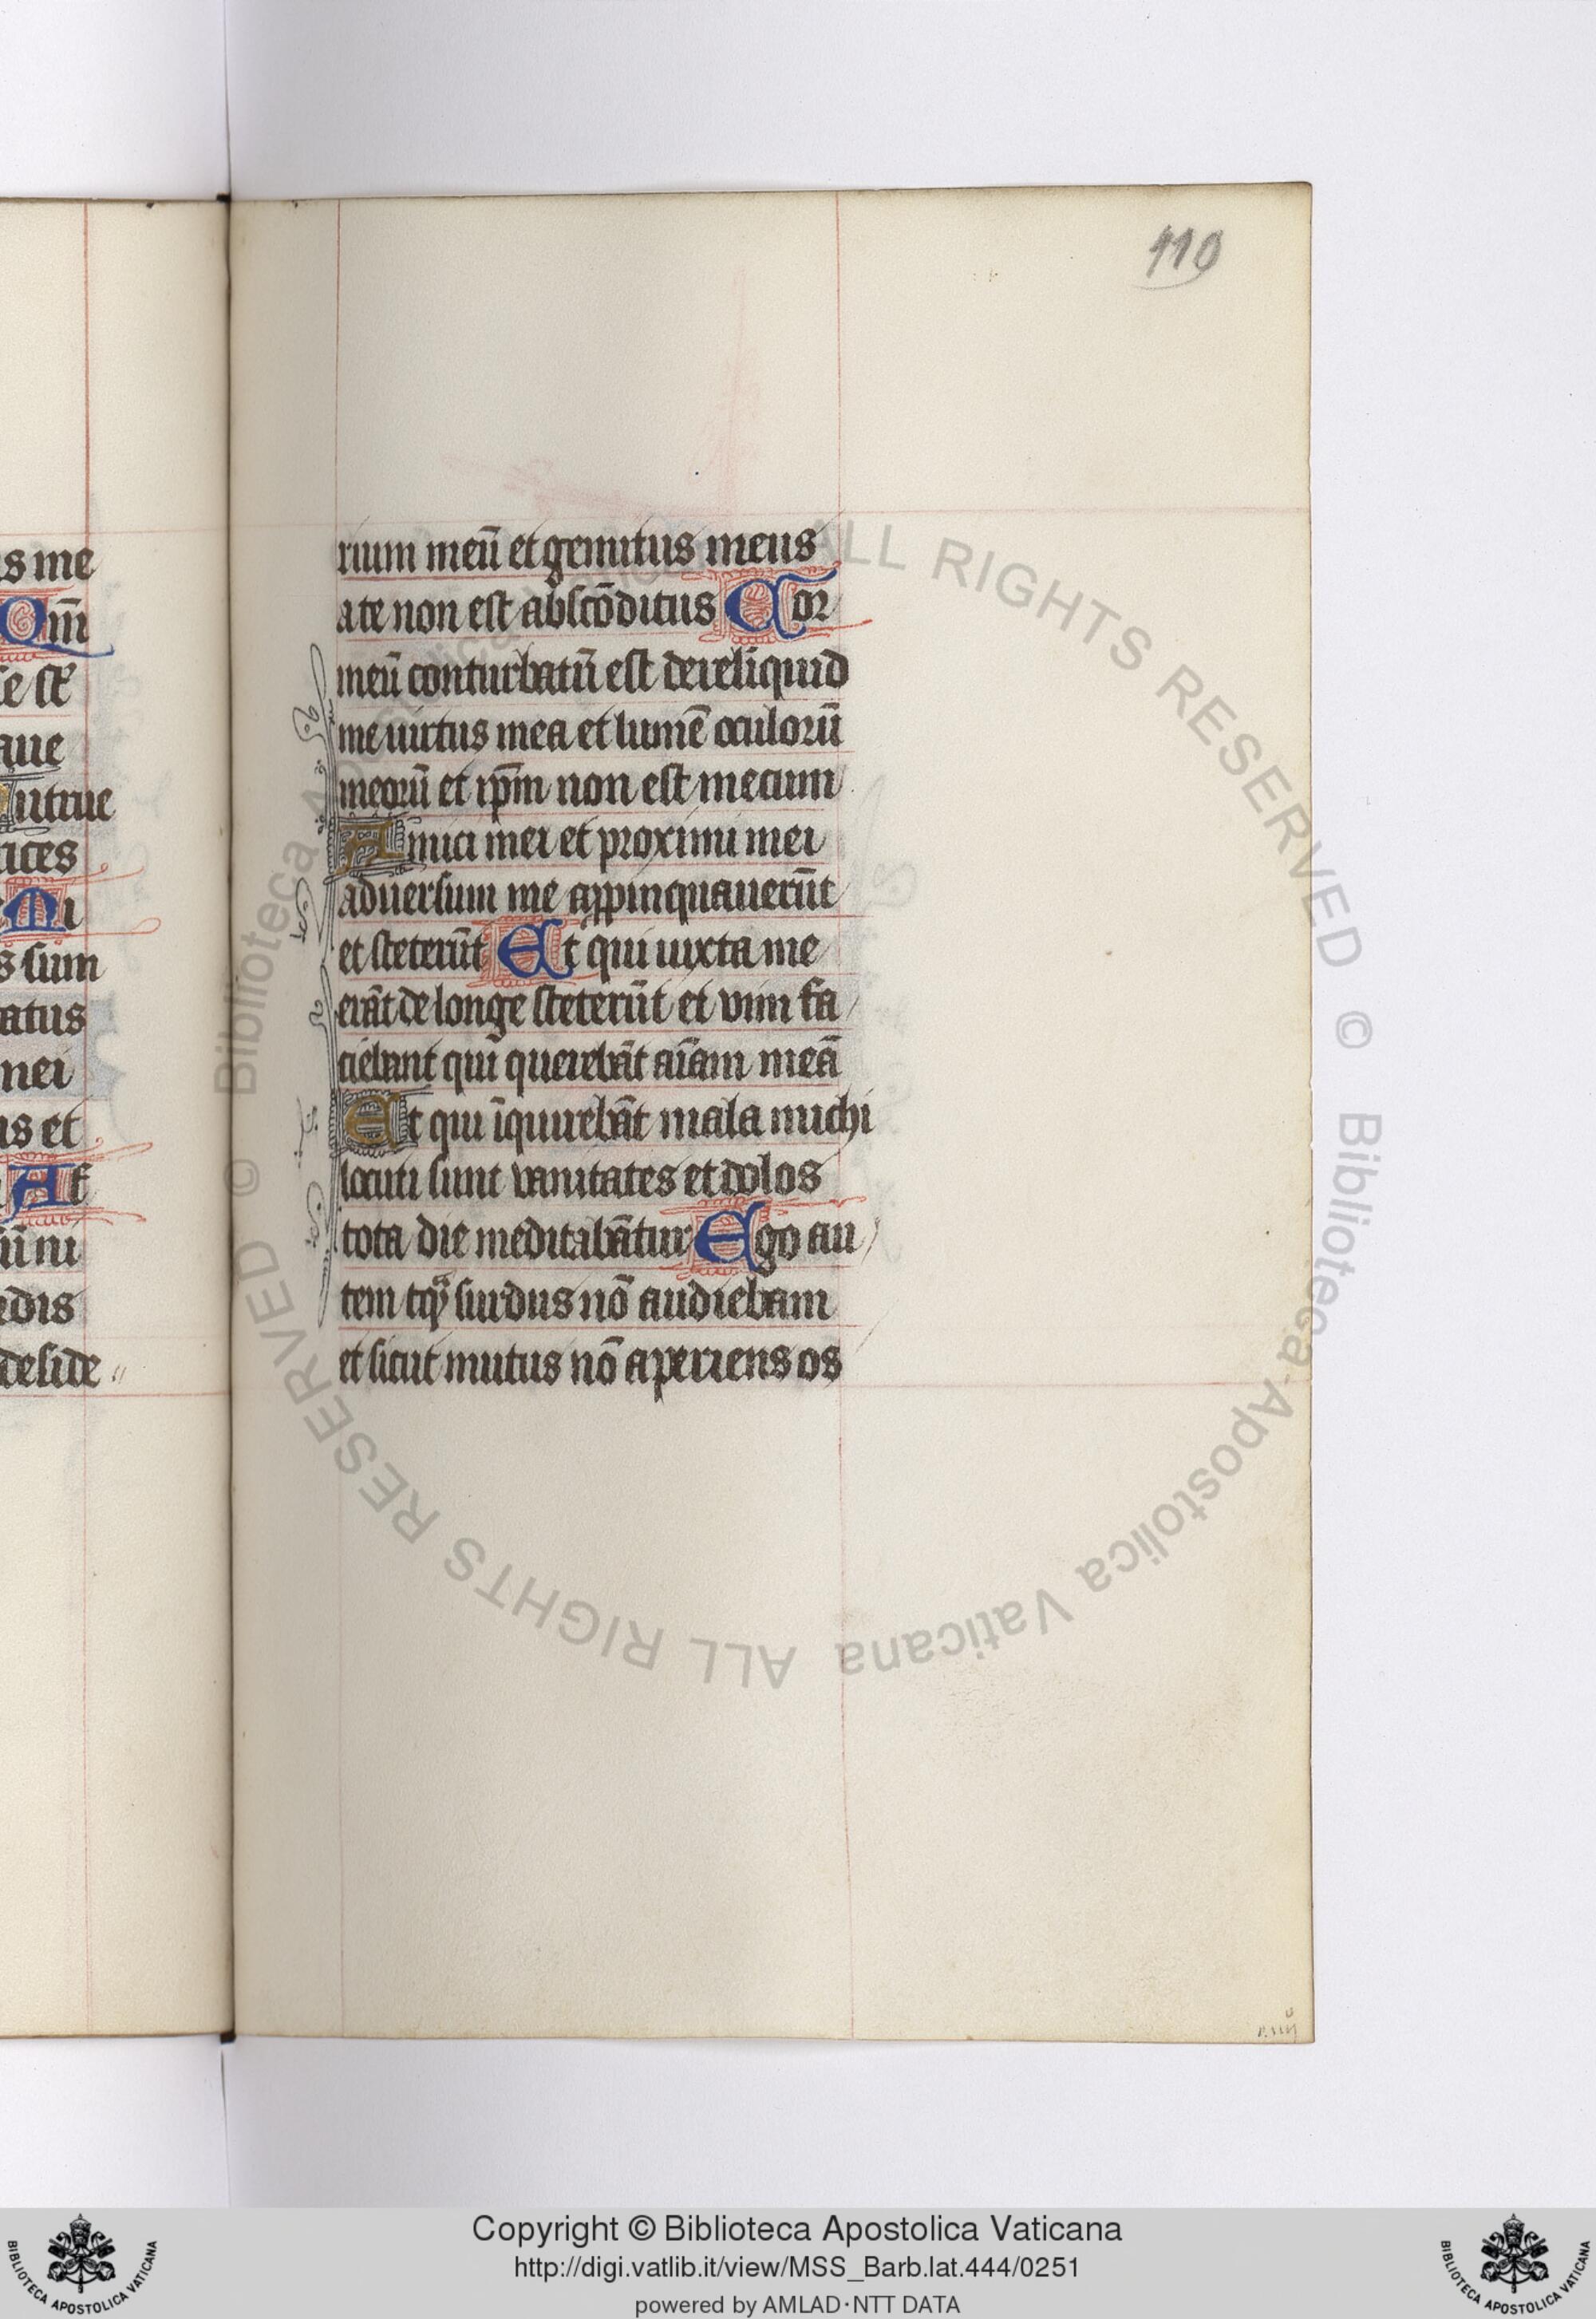 110
s me
Qm̄
se st̄
aue
intrue
ices
Mi
s sum
atus
mei
is et
Af
ū ni
rdis
deside
rium meū et gemitus meus
a te non est abscōditus Cor
meū conturbatū est dereliquid
me uirtus mea et lumē oculorū
meorū et ip̄m non est mecum
Amici mei et proximi mei
aduersum me appinquauerūt
et steterūt Et qui iuxta me
erāt de longe steterūt et vim fa
ciebant qui querebāt aīam meā
Et qui īquirebāt mala michi
locuti sunt vanitates et dolos
tota die meditabātur Ego au
tem tq̄ surdus nō audiebam
et sicut mutus nō aperiens os
© Biblioteca Apostolica Vaticana ALL RIGHTS RESERVED © Biblioteca Apostolica Vaticana ALL RIGHTS RESERVED
Copyright © Biblioteca Apostolica Vaticana
http://digi.vatlib.it/view/MSS_Barb.lat.444/0251
powered by AMLAD·NTT DATA
BIBLIOTECA APOSTOLICA VATICANA
BIBLIOTECA APOSTOLICA VATICANA